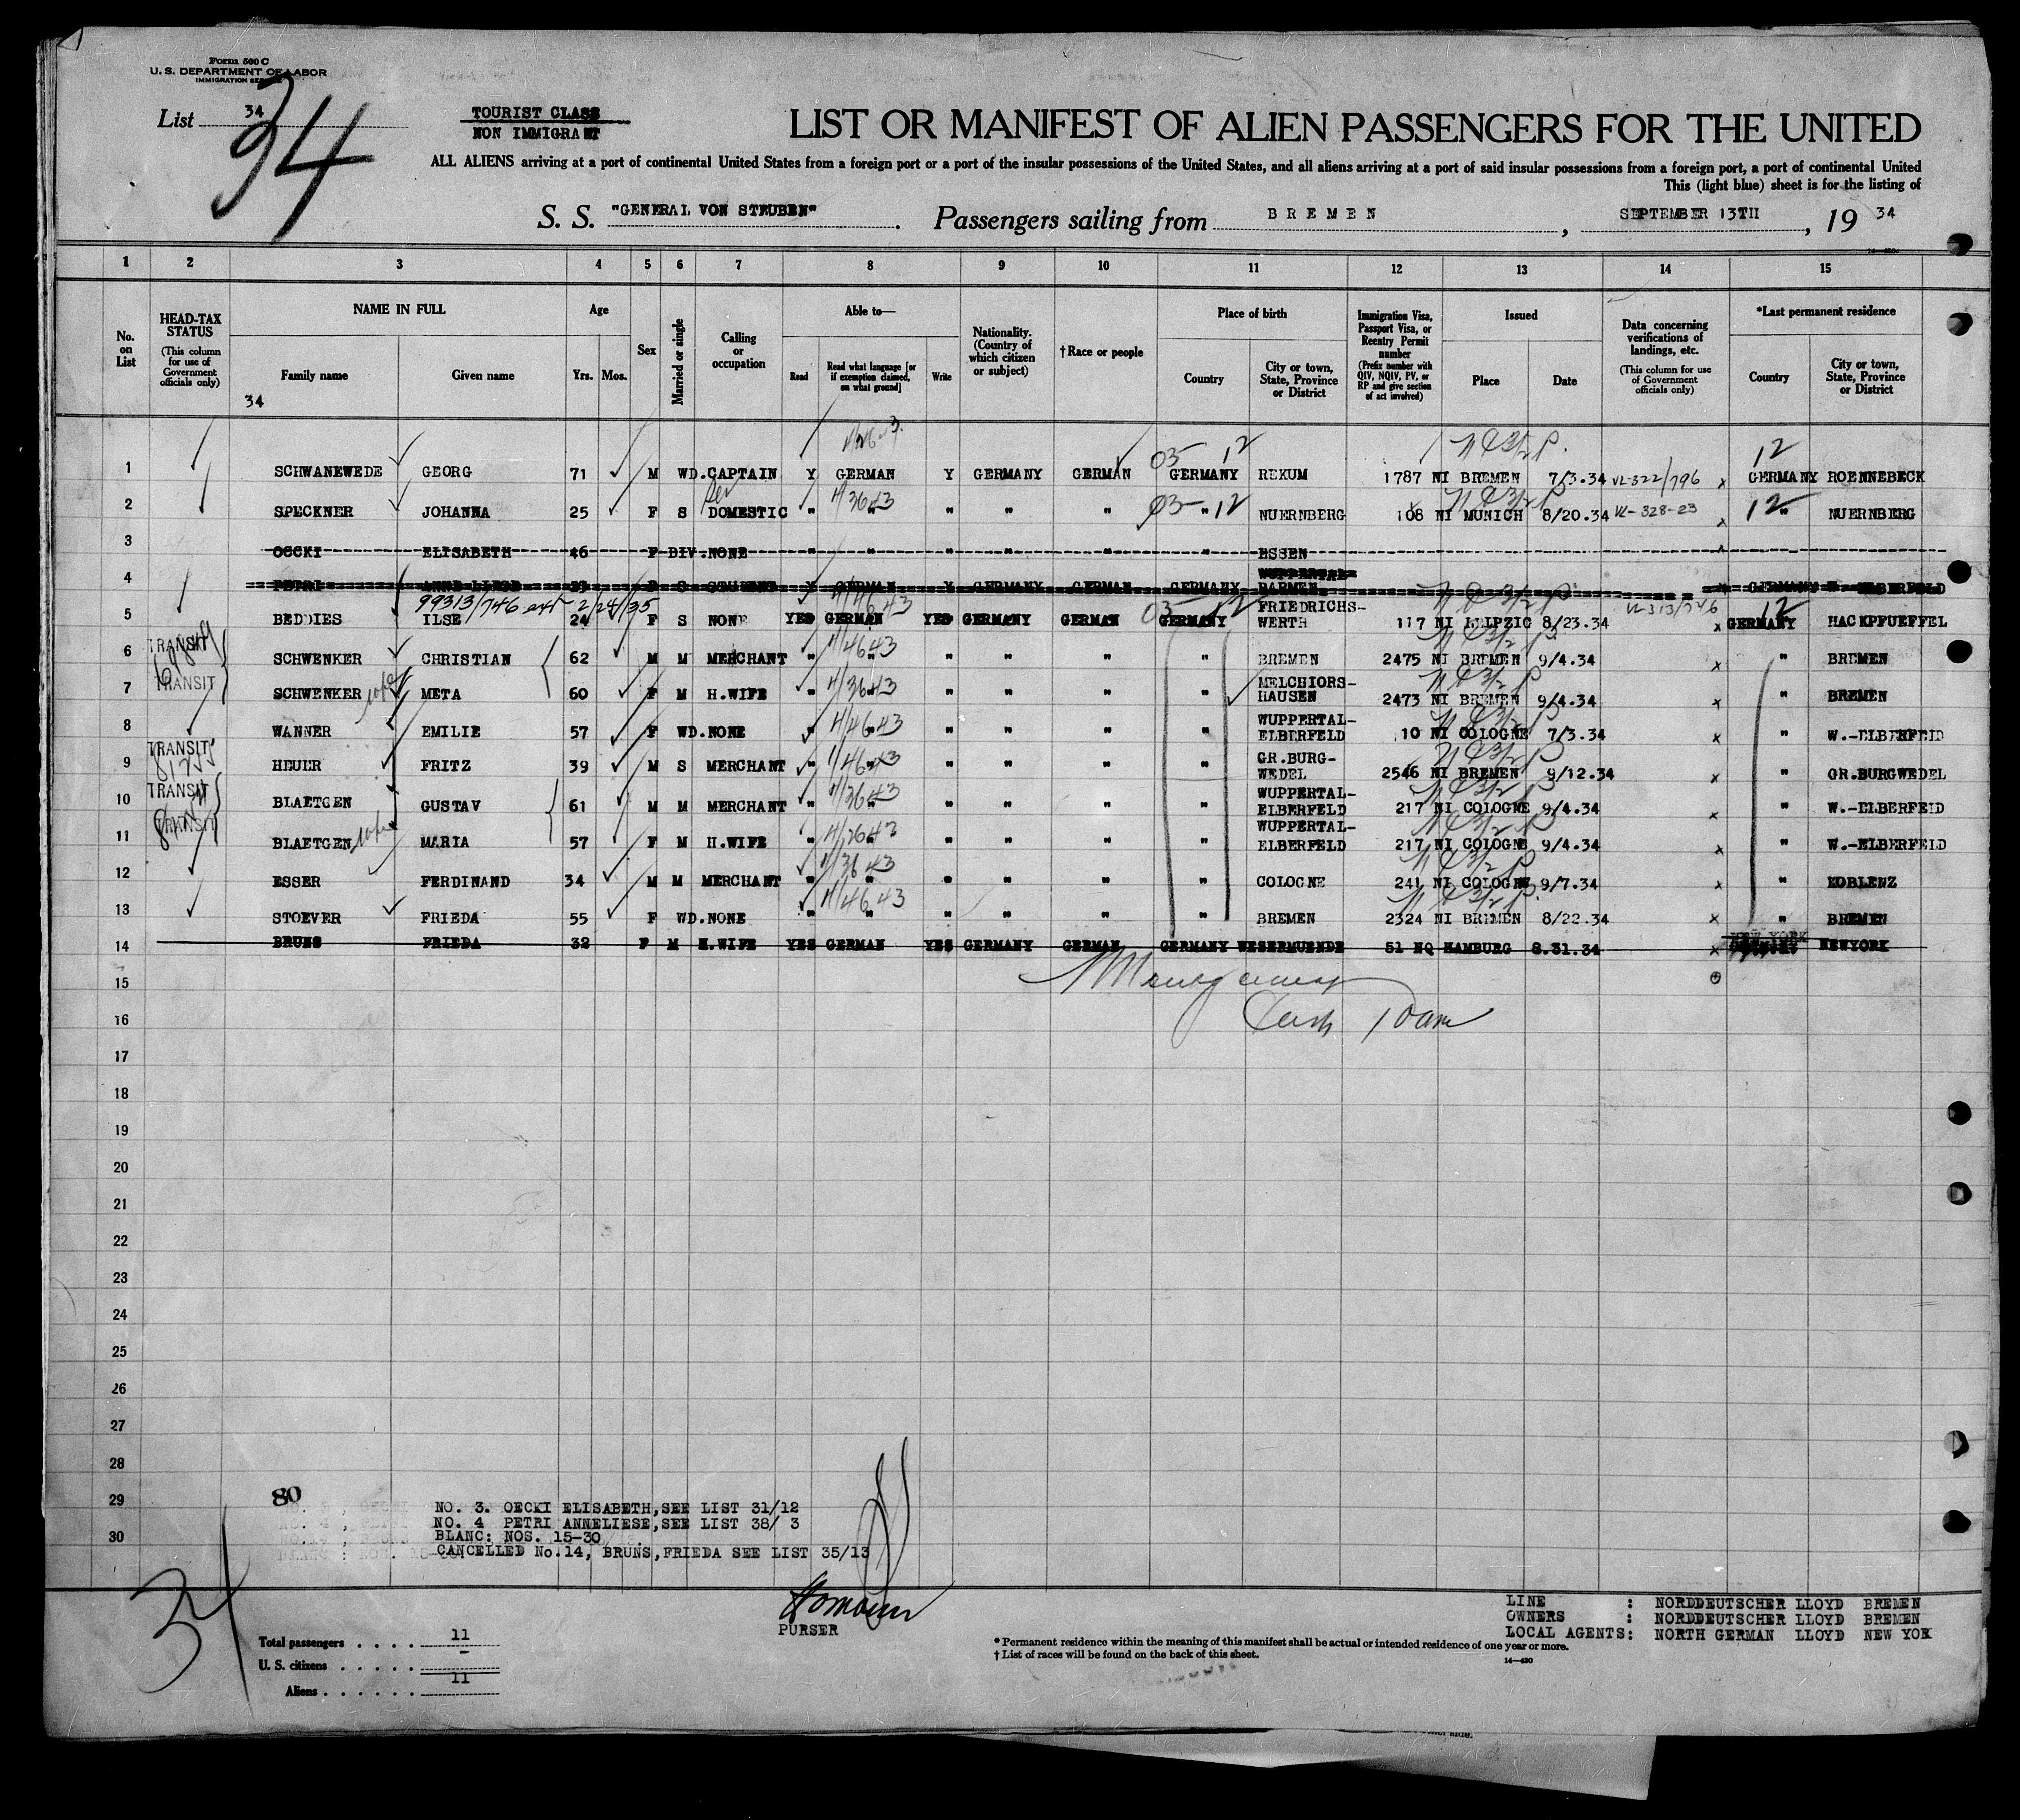 Form 500 C
U. S. DEPARTMENT OF LABOR
IMMIGRATION SERVICE
List 34
34
TOURIST CLASS
NON IMMIGRANT
LIST OR MANIFEST OF ALIEN PASSENGERS FOR THE UNITED
ALL ALIENS arriving at a port of continental United States from a foreign port or a port of the insular possessions of the United States, and all aliens arriving at a port of said insular possessions from a foreign port, a port of continental United
This (light blue) sheet is for the listing of
S. S. "GENERAL VON STEUBEN". Passengers sailing from BREMEN, SEPTEMBER 13TH, 19 34
14—430
1 2 3 4 5 6 7 8 9 10 11 12 13 14 15
No. on List
HEAD-TAX STATUS
(This column for use of Government officials only)
NAME IN FULL
Family name
Given name
34
Age
Yrs. Mos.
Sex
Married or single
Calling or occupation
Able to—
Read
Read what language [or if exemption claimed, on what ground]
Write
Nationality. (Country of which citizen or subject)
† Race or people
Place of birth
Country
City or town, State, Province or District
Immigration Visa, Passport Visa, or Reentry Permit number
(Prefix number with QIV, NQIV, PV, or RP and give section of act involved)
Issued
Place
Date
Data concerning verifications of landings, etc.
(This column for use of Government officials only)
*Last permanent residence
Country
City or town, State, Province or District
03 12 12
1 SCHWANEWEDE GEORG 71 M WD. CAPTAIN Y GERMAN Y GERMANY GERMAN GERMANY REKUM 1787 NI BREMEN 7/3.34 VL-322/796 x GERMANY ROENNEBECK
03-12 12
2 SPECKNER JOHANNA 25 F S DOMESTIC " " " " " " NUERNBERG 108 NI MUNICH 8/20.34 VL-328-23 x " NUERNBERG
3 OECKI ELISABETH 46 F DIV. NONE " " " " " " ESSEN
4 PETRI ANNE LIESE S STUDENT Y GERMAN Y GERMANY GERMAN GERMANY WUPPERTAL- BARMEN GERMANY ELBERFELD
99313/746 ext 2/24/35 03 12 VL-313/746 12
5 BEDDIES ILSE 24 F S NONE YES GERMAN YES GERMANY GERMAN GERMANY FRIEDRICHS- WERTH 117 NI LEIPZIG 8/23.34 x GERMANY HACKPFUEFFEL
6 TRANSIT SCHWENKER CHRISTIAN 62 M M MERCHANT " " " " " " BREMEN 2475 NI BREMEN 9/4.34 x " BREMEN
7 TRANSIT SCHWENKER META 60 F M H.WIFE " " " " " " MELCHIORS- HAUSEN 2473 NI BREMEN 9/4.34 x " BREMEN
8 WANNER EMILIE 57 F WD. NONE " " " " " " WUPPERTAL- ELBERFELD 10 NI COLOGNE 7/3.34 x " W.-ELBERFEID
9 TRANSIT HEUER FRITZ 39 M S MERCHANT " " " " " " GR.BURG- WEDEL 2546 NI BREMEN 9/12.34 x " GR.BURGWEDEL
10 TRANSIT BLAETGEN GUSTAV 61 M M MERCHANT " " " " " " WUPPERTAL- ELBERFELD 217 NI COLOGNE 9/4.34 x " W.-ELBERFEID
11 TRANSIT BLAETGEN MARIA 57 F M H.WIFE " " " " " " WUPPERTAL- ELBERFELD 217 NI COLOGNE 9/4.34 x " W.-ELBERFELD
12 ESSER FERDINAND 34 M M MERCHANT " " " " " " COLOGNE 241 NI COLOGNE 9/7.34 x " KOBLENZ
13 STOEVER FRIEDA 55 F WD. NONE " " " " " " BREMEN 2324 NI BREMEN 8/22.34 x " BREMEN
14 BRUNS FRIEDA 32 F M H.WIFE YES GERMAN YES GERMANY GERMAN GERMANY WESERMUENDE 51 NQ HAMBURG 8.31.34 x NEW YORK NEWYORK
15
16
17
18
19
20
21
22
23
24
25
26
27
28
29
30
80
NO. 3. OECKI ELISABETH, SEE LIST 31/12
NO. 4 PETRI ANNELIESE, SEE LIST 38/ 3
BLANC: NOS. 15-30
CANCELLED No. 14, BRUNS, FRIEDA SEE LIST 35/13
34
PURSER
Total passengers . . . . 11
U. S. citizens . . . . . -
Aliens . . . . . . 11
* Permanent residence within the meaning of this manifest shall be actual or intended residence of one year or more.
† List of races will be found on the back of this sheet.
14—430
LINE : NORDDEUTSCHER LLOYD BREMEN
OWNERS : NORDDEUTSCHER LLOYD BREMEN
LOCAL AGENTS: NORTH GERMAN LLOYD NEW YORK